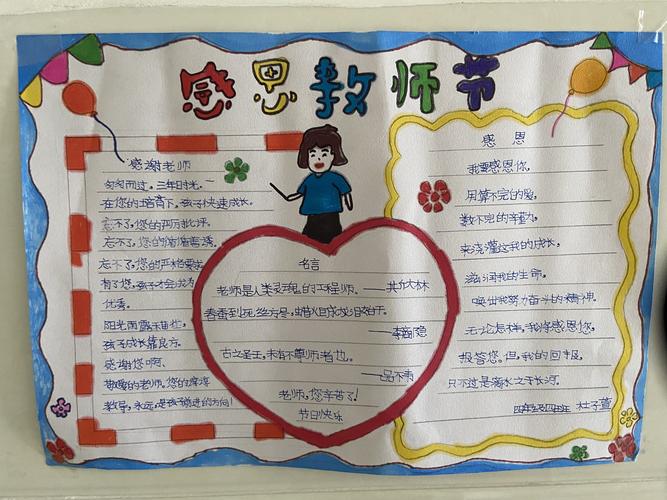 感恩教师节
感谢老师
匆匆而过，三年时光。一
在您的培育下，孩子快速成长。
忘不了，您的严厉批评。
忘不了，您的循循善诱。
忘不了，您的严格要求
有了您，孩子才会成为
优秀。
阳光雨露
孩子成长靠良方。
感谢您啊，
敬爱的老师，您的谆谆
教导，永远是孩子前进的方向！
名言
老师是人类灵魂的工程师。——
春蚕到死丝方尽，蜡炬成灰泪始干。
——李商隐
古之圣王，未有不尊师者也。
——吕不韦
老师，您辛苦了！
节日快乐
感恩
我要感恩您，
用算不完的爱，
数不完的辛勤，
来浇灌这我的成长，
滋润我的生命。
唤出我努力奋斗的精神。
无论怎样，我将感恩您，
报答您。但，我的回报，
只不过是滴水之于长河。
杜子萱